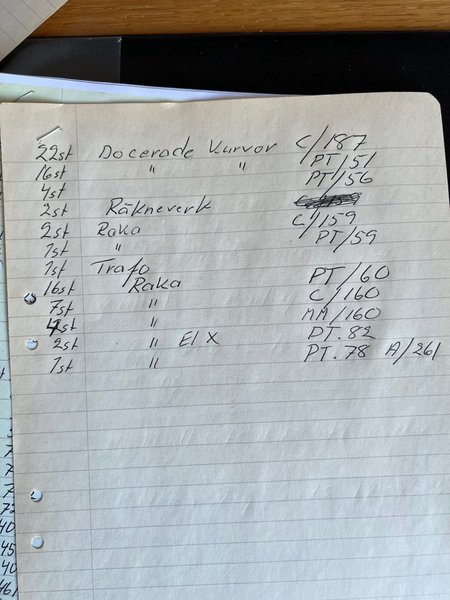 22st Docerade Kurvor C/187
16st " " PT/51
4st PT/56
2st Räkneverk
2st Raka C/159
1st " PT/59
1st Trafo
16st Raka PT/60
7st " C/160
4st " MM/160
2st " El X PT.82
1st " PT.78 A/261